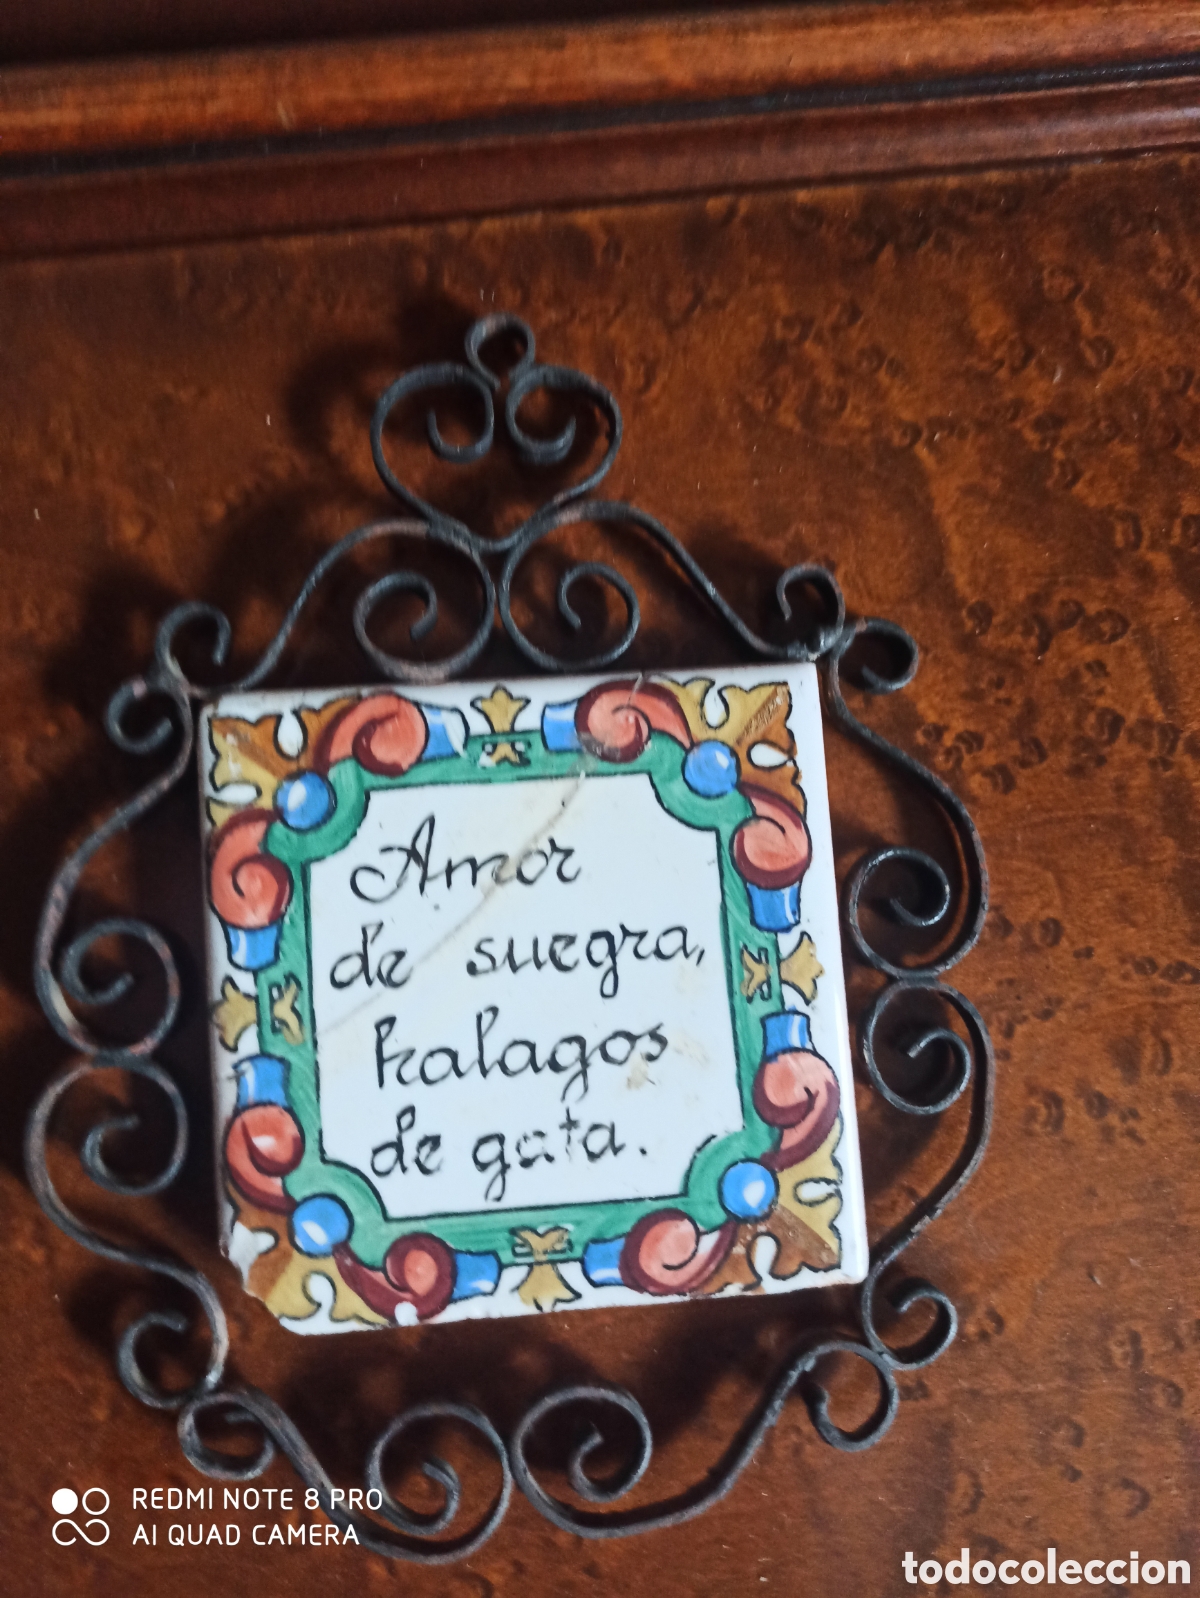 Amor
de suegra,
halagos
de gata.
REDMI NOTE 8 PRO
AI QUAD CAMERA
todocoleccion